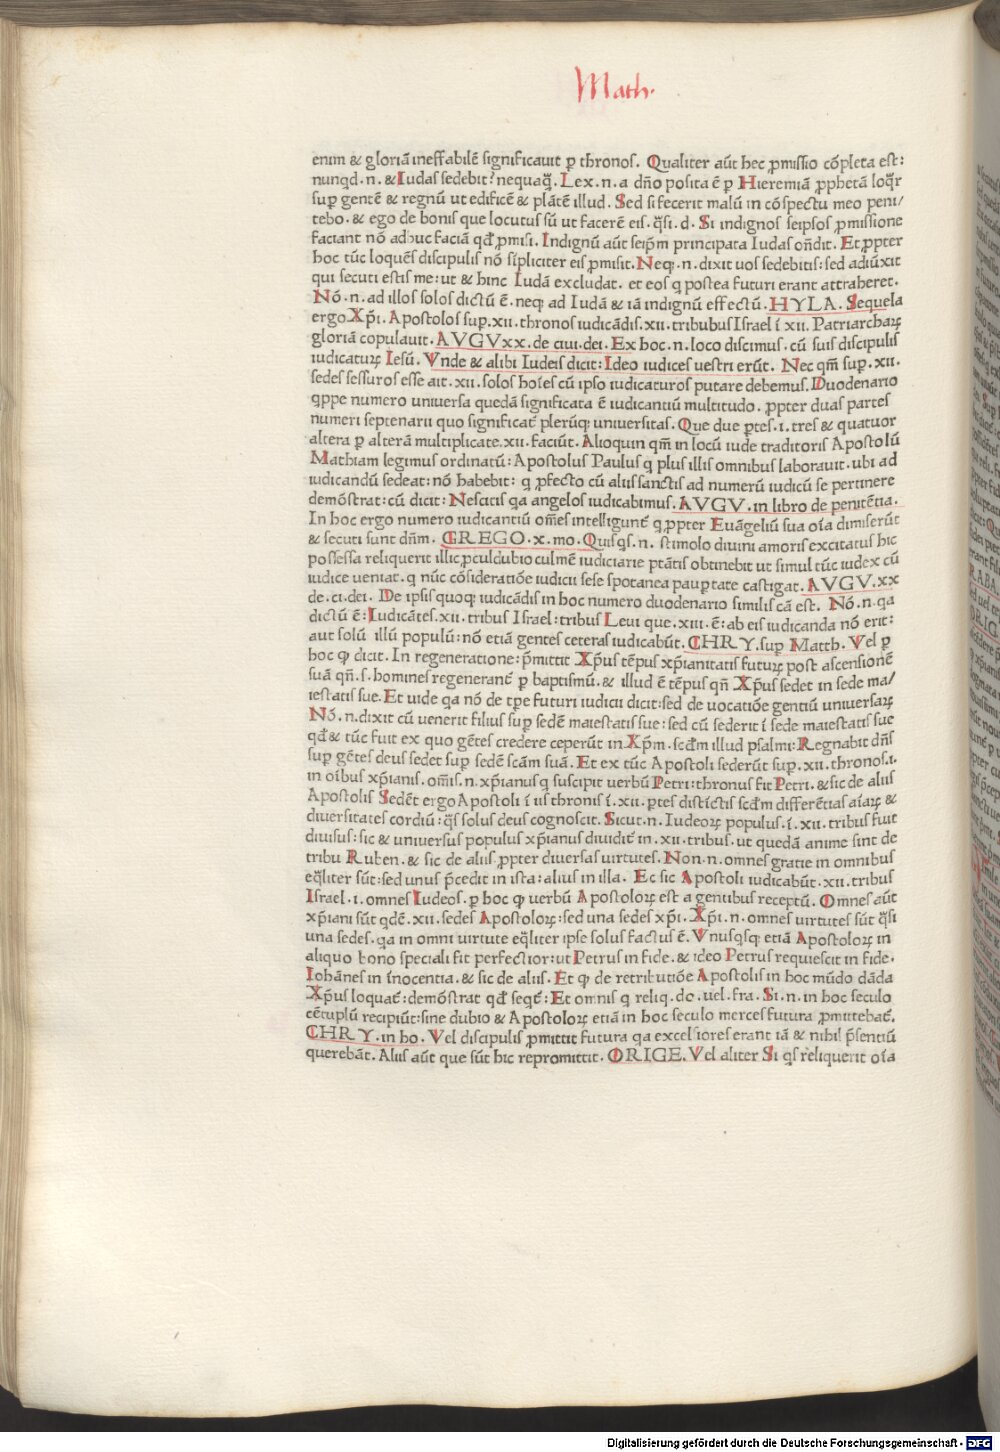 Math.
enim & gloriā ineffabilē significauit ꝑ thronos. Qualiter aūt hec ꝓmissio cōpleta est:
nunqd.n.& Iudas sedebit? nequaq̄. Lex.n.a dn̄o posita ē ꝑ Hieremiā ꝓphetā loqr̄
suꝑ gentē & regnū ut edificē & plātē illud. Sed si fecerit malū in cōspectu meo peni/
tebo.& ego de bonis que locutus sū ut facerē eis. q̄si.d. Si indignos seipsos ꝓmissione
faciant nō adhuc faciā qd̄ ꝓmisi. Indignū aūt seip̄m principatu Iudas on̄dit. Et ꝓpter
hoc tūc loquēs discipulis nō sīpliciter eis ꝓmisit. Neqꝫ.n.dixit uos sedebitis: sed adiūxit
qui secuti estis me: ut & hinc Iudā excludat. et eos q postea futuri erant attraheret.
Nō.n.ad illos solos dictū ē.neqꝫ ad Iudā & iā indignū effectū. HYLA. Sequela
ergo Xp̄i. Apostolos suꝑ.xii.thronos iudicādis.xii.tribubus Israel ī xii. Patriarchaꝝ
gloriā copulauit. AVGV xx. de ciui.dei. Ex hoc.n.loco discimus. cū suis discipulis
iudicatuꝝ Iesū. Vnde & alibi Iudeis dicit: Ideo iudices uestri erūt. Nec qm̄ suꝑ.xii.
sedes sessuros esse ait.xii.solos hoīes cū ipso iudicaturos putare debemus. Duodenario
qppe numero uniuersa quedā significata ē iudicantiū multitudo. ꝓpter duas partes
numeri septenarii quo significat̄ plerūqꝫ uniuersitas. Que due ꝑtes.i.tres & quatuor
altera ꝑ alterā multiplicate.xii.faciūt. Alioquin qm̄ in locū iude traditoris Apostolū
Mathiam legimus ordinatū: Apostolus Paulus q plus illis omnibus laborauit.ubi ad
iudicandū sedeat: nō habebit: q ꝓfecto cū aliis sanctis ad numerū iudicū se pertinere
demōstrat: cū dicit: Nescitis qa angelos iudicabimus. AVGV. in libro de penitētia.
In hoc ergo numero iudicantiū om̄es intelligunt̄ q ꝓpter Euāgeliū sua oīa dimiserūt
& secuti sunt dn̄m. GREGO.x.mo. Quisqs.n. stimolo diuini amoris excitatus hic
possessa reliquerit illic ꝓculdubio culmē iudiciarie ptātis obtinebit ut simul tūc iudex cū
iudice ueniat. q nūc cōsideratiōe iudicii sese spotanea pauꝑtate castigat. AVGV.xx
de.ci.dei. De ipsis quoqꝫ iudicādis in hoc numero duodenario similis cā est. Nō.n.qa
dictū ē: Iudicātes.xii.tribus Israel: tribus Leui que.xiii.ē: ab eis iudicanda nō erit:
aut solū illū populū: nō etiā gentes ceteras iudicabūt. CHRY. suꝑ Matth. Vel ꝑ
hoc ꝙ dicit. In regeneratione: p̄mittit Xp̄us tēpus xp̄ianitatis futuꝝ post ascensionē
suā qn̄.s.homines regenerant̄ ꝑ baptismū.& illud ē tēpus qn̄ Xp̄us sedet in sede ma/
iestatis sue. Et uide qa nō de tp̄e futuri iudicii dicit: sed de uocatiōe gentiū uniuersaꝝ
Nō.n.dixit cū uenerit filius suꝑ sedē maiestatis sue: sed cū sederit ī sede maiestatis sue
qd̄ & tūc fuit ex quo gētes credere ceperūt in Xp̄m. scd̄m illud psalmi: Regnabit dn̄s
suꝑ gētes deus sedet suꝑ sedē scām suā. Et ex tūc Apostoli sederūt suꝑ.xii.thronos.i.
in oībus xp̄ianis. om̄is.n.xp̄ianus q suscipit uerbū Petri: thronus fit Petri. & sic de aliis
Apostolis Sedēt ergo Apostoli ī iis thronis ī.xii.ꝑtes distīctis scd̄m differētias aīaꝝ &
diuersitates cordiū: q̄s solus deus cognoscit. Sicut.n.Iudeoꝝ populus.ī.xii.tribus fuit
diuisus: sic & uniuersus populus xp̄ianus diuidit̄ in.xii.tribus.ut quedā anime sint de
tribu Ruben.& sic de aliis ꝓpter diuersas uirtutes. Non.n.omnes gratie in omnibus
eq̄liter sūt: sed unus p̄cedit in ista: alius in illa. Ec sic Apostoli iudicabūt.xii.tribus
Israel.i.omnes Iudeos.ꝑ hoc ꝙ uerbū Apostoloꝝ est a gentibus receptū. Omnes aūt
xp̄iani sūt qdē.xii.sedes Apostoloꝝ: sed una sedes xp̄i. Xp̄i.n.omnes uirtutes sūt q̄si
una sedes.qa in omni uirtute eq̄liter ipse solus factus ē. Vnusqsqꝫ etiā Apostoloꝝ in
aliquo bono speciali fit perfectior: ut Petrus in fide.& ideo Petrus requiescit in fide.
Iohānes in īnocentia.& sic de aliis. Et ꝙ de retributiōe Apostolis in hoc mūdo dāda
Xp̄us loquat̄: demōstrat qd̄ seqt̄: Et omnis q reliq.do.uel.fra. Si.n.in hoc seculo
cētuplū recipiūt: sine dubio & Apostoloꝝ etiā in hoc seculo merces futura ꝓmittebat̄.
CHRY.in ho. Vel discipulis ꝓmittit futura qa excelsiores erant iā & nihil p̄sentiū
querebāt. Aliis aūt que sūt hic repromittit. ORIGE. Vel aliter Si qs reliquerit oīa
Digitalisierung gefördert durch die Deutsche Forschungsgemeinschaft - DFG